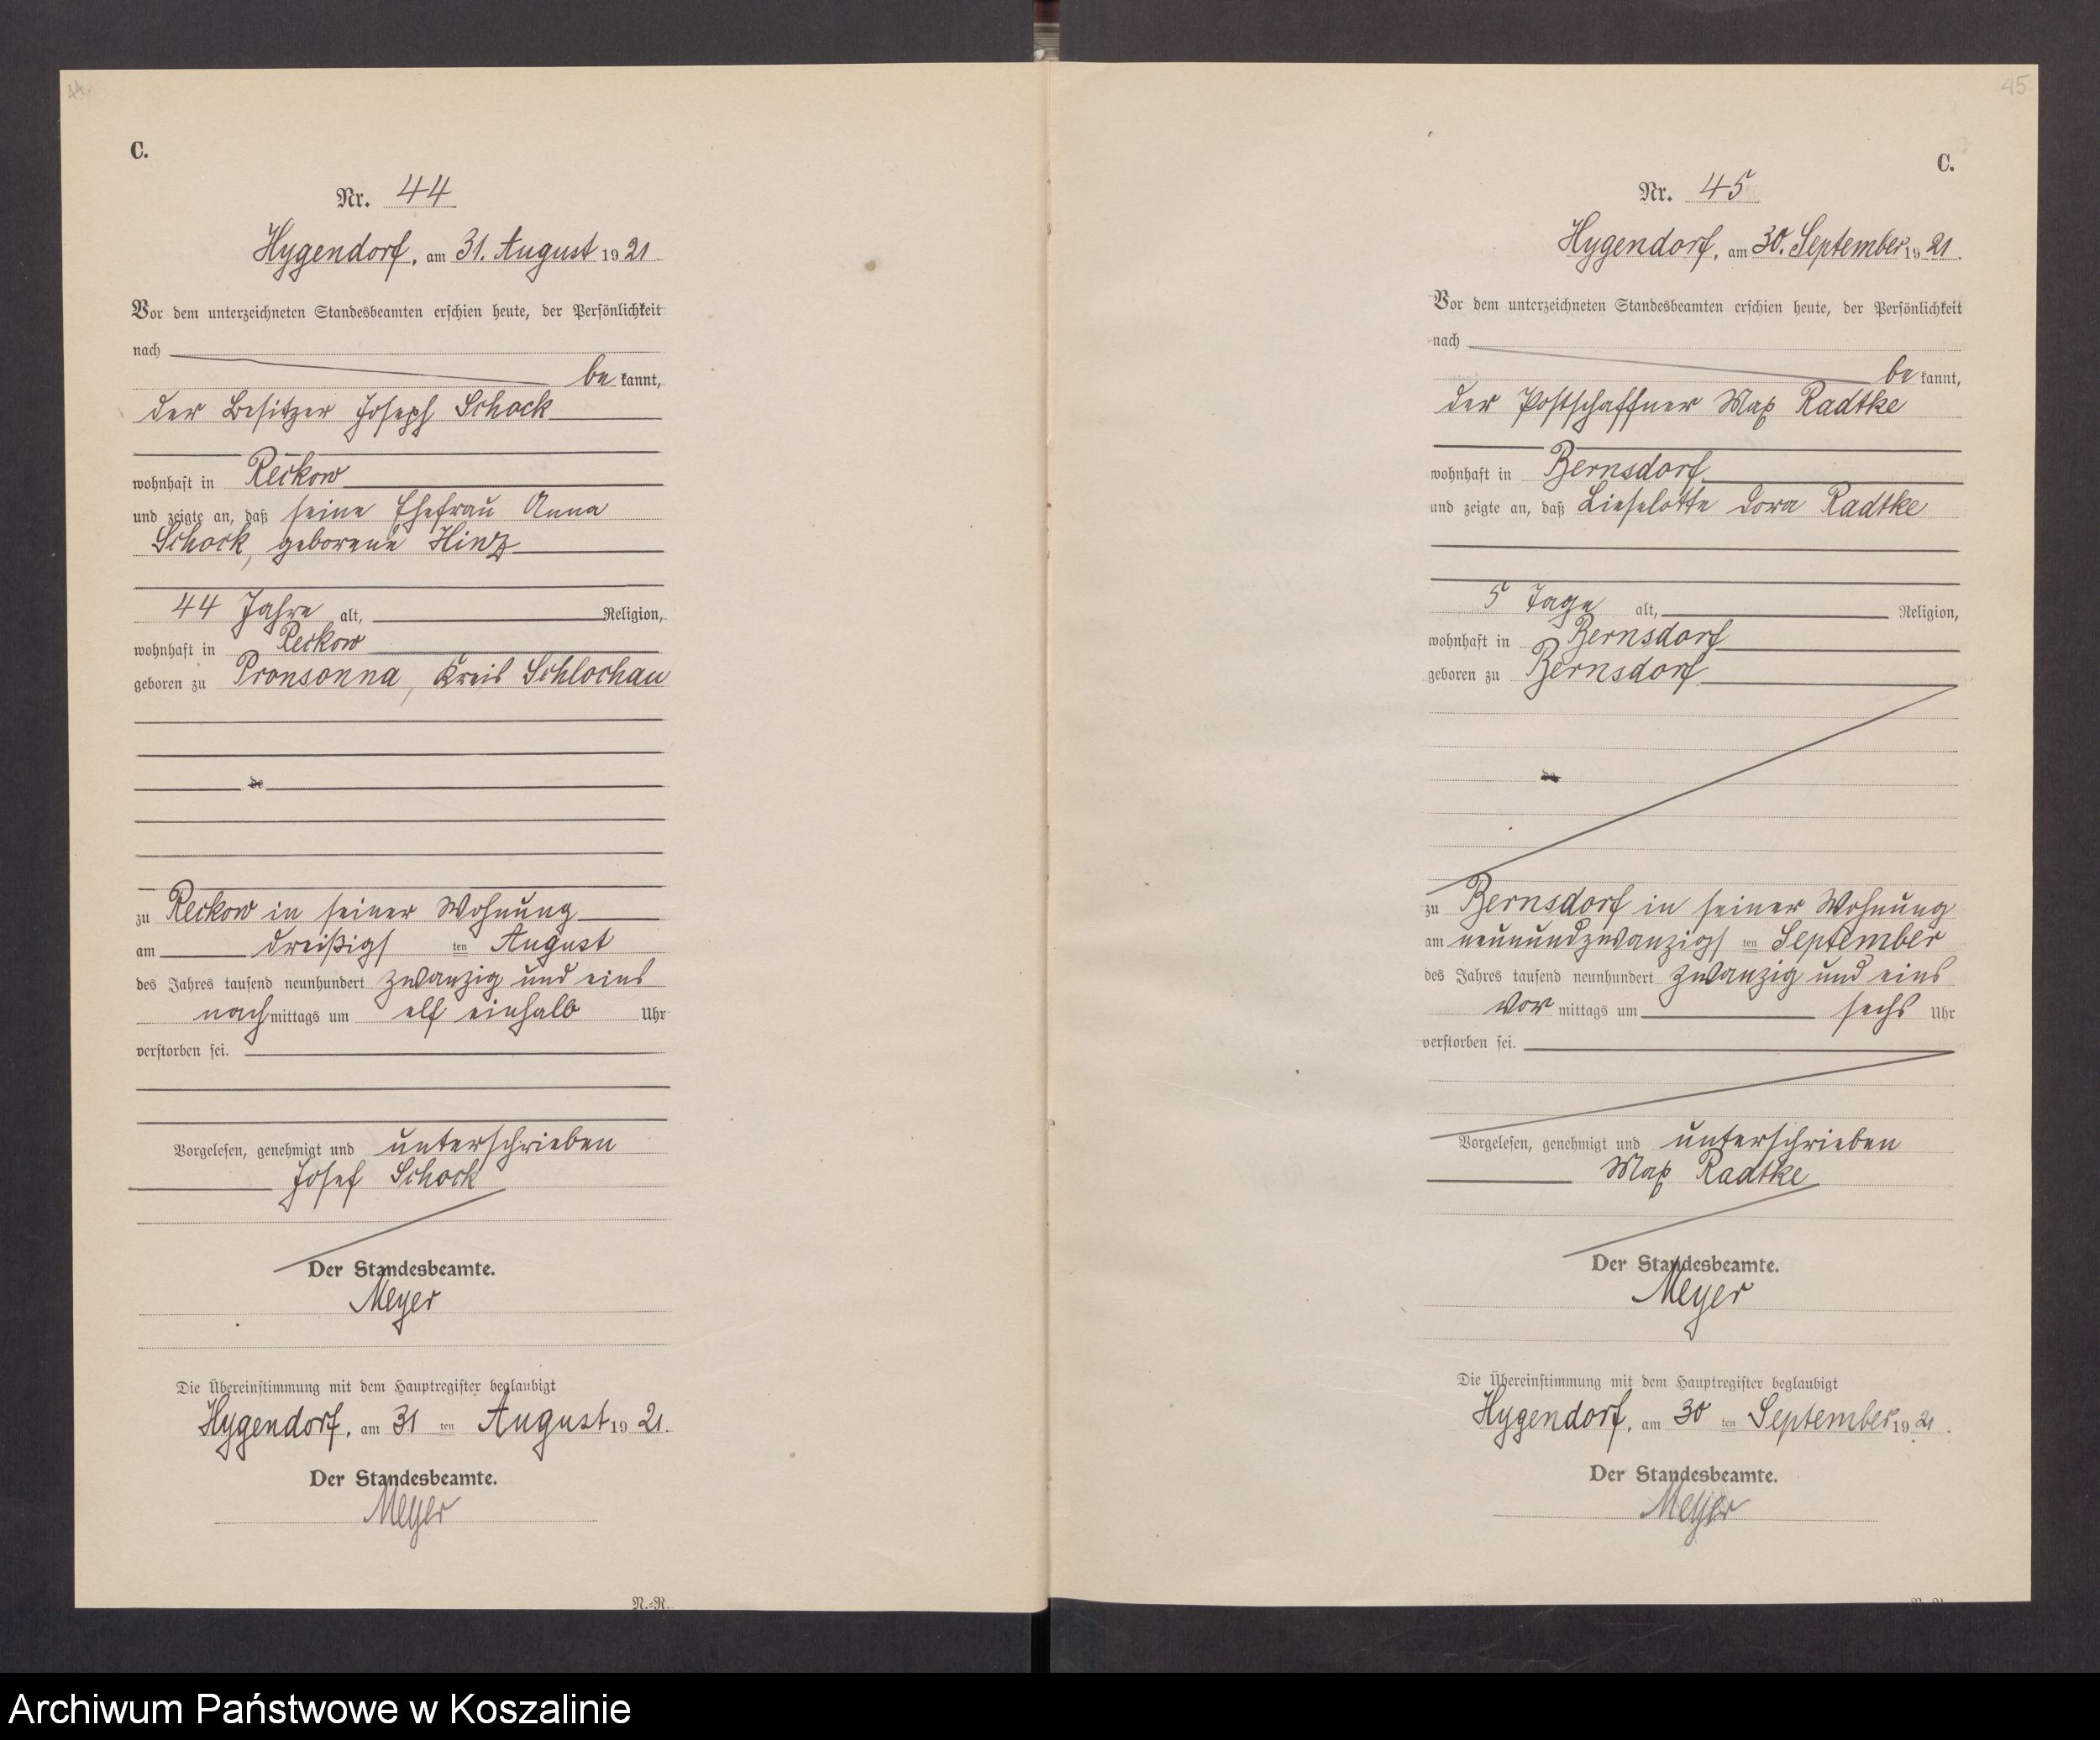 44
C.
Nr. 44
Hygendorf, am 31. August 1921
Vor dem unterzeichneten Standesbeamten erschien heute, der Persönlichkeit
nach
be kannt,
der Besitzer Joseph Schock
wohnhaft in Reckow
und zeigte an, daß seine Ehefrau Anna
Schock, geborene Hinz
44 Jahre alt, Religion,
wohnhaft in Reckow
geboren zu Pronsonna, Kreis Schlochau
de
zu Reckow in seiner Wohnung
am dreißigs ten August
des Jahres tausend neunhundert zwanzig und eins
nach mittags um elf einhalb Uhr
verstorben sei.
Vorgelesen, genehmigt und unterschrieben
Josef Schock
Der Standesbeamte.
Meyer
Die Übereinstimmung mit dem Hauptregister beglaubigt
Hygendorf, am 31 ten August 1921.
Der Standesbeamte.
Meyer
N.-R.
45
C.
Nr. 45
Hygendorf, am 30. September 1921.
Vor dem unterzeichneten Standesbeamten erschien heute, der Persönlichkeit
nach
be kannt,
der Postschaffner Max Radtke
wohnhaft in Bernsdorf
und zeigte an, daß Lieselotte Dora Radtke
5 Tage alt, Religion,
wohnhaft in Bernsdorf
geboren zu Bernsdorf
zu Bernsdorf in seiner Wohnung
am neunundzwanzigs ten September
des Jahres tausend neunhundert zwanzig und eins
vor mittags um sechs Uhr
verstorben sei.
Vorgelesen, genehmigt und unterschrieben
Max Radtke
Der Standesbeamte.
Meyer
Die Übereinstimmung mit dem Hauptregister beglaubigt
Hygendorf, am 30 ten September 1921.
Der Standesbeamte.
Meyer
Archiwum Państwowe w Koszalinie